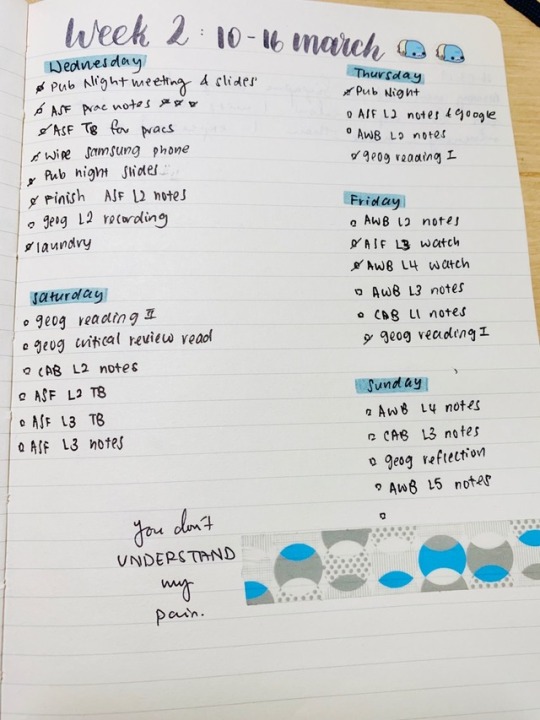 Week 2 : 10-16 march
Wednesday
Pub Night meeting & slides
ASF prac notes
ASF TB for pracs
Wipe Samsung phone
Pub night slides
Finish ASF L2 notes
geog L2 recording
laundry
Thursday
Pub Night
ASF L2 notes & google
AWB L2 notes
geog reading I
Friday
AWB L2 notes
ASF L3 watch
AWB L4 watch
AWB L3 notes
CAB L1 notes
geog reading I
Saturday
geog reading II
geog critical review read
CAB L2 notes
ASF L2 TB
ASF L3 TB
ASF L3 notes
Sunday
AWB L4 notes
CAB L3 notes
geog reflection
AWB L5 notes
you don't
UNDERSTAND
my
pain.